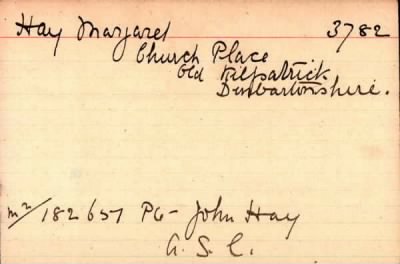 Hay Margaret 3782
Church Place
Old Kilpatrick
Dumbartonshire.
m2/182657 Pte John Hay
A.S.C.